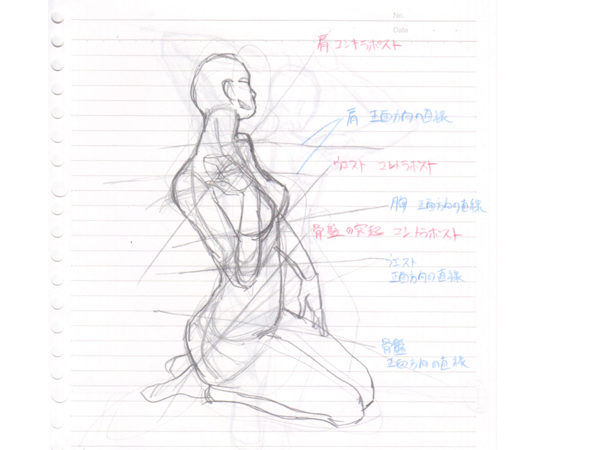 No.
Date
肩 コントラポスト
肩 正面方向の直線
ウエスト コントラポスト
胸 正面方向の直線
骨盤の突起 コントラポスト
ウエスト
正面方向の直線
骨盤
正面方向の直線